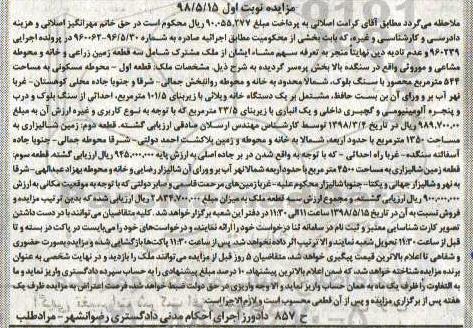 مزایده نوبت اول ۹۸/۵/۱۵
ملاحظه می‌گردد مطابق آقای کرامت اصلانی به پرداخت مبلغ ۹۰٫۰۵۵٫۲۷۷ ریال محکوم است در حق خانم مهرانگیز اصلانی و هزینه
دادرسی و کارشناسی و غیره، که بابت بخشی از محکومیت مطابق اجرائیه صادره به شماره ۹۶/۵/۳۰-۹۶۰۰۶۳ در پرونده اجرایی
۹۶۰۲۳۹ و عدم تادیه دین نهایتاً منجر به تعرفه سهم مشاء ایشان از ملک مشترک شامل سه قطعه زمین زراعی و خانه و محوطه
مشاعی و موروثی واقع در سنگده بالا بخش پره‌سر گردیده به شرح ذیل. مشخصات ملک: قطعه اول - محوطه مسکونی به مساحت
۵۴۴ مترمربع محصور با سنگ بلوک، شمالا محدود به خانه و محوطه وراث بخش جمالی- شرقا و جنوبا جاده محلی کوهستان- غربا
نهر آب بر و ورای آن بن بست حافظ، مشتمل بر یک دستگاه خانه ویلائی با زیربنای ۱۰۱/۵ مترمربع، احداثی از سنگ بلوک و درب
و پنجره آلومینیومی و گچبری داخلی و یک انباری با زیربنای ۲۳/۵ مترمربع که با توجه به نوع کاربری و غیره ارزش آن به مبلغ
۹۸۹٫۷۰۰٫۰۰۰ ریال در تاریخ ۱۳۹۸/۳/۴ توسط کارشناس مهندس ارسلان صادقی ارزیابی گشته. قطعه دوم: زمین شالیزاری به
مساحت ۱۳۵۰ مترمربع با حدود اربعه، شمالا به خانه و محوطه و زمین پلاکاشت احمد دولتی- شرقا محوطه جمالی- جنوبا جاده
آسفالته سنگده- غربا راه احداثی - که با توجه به واقع شدن در بر جاده اصلی به ارزش پایه ۹۴۵٫۰۰۰٫۰۰۰ ریال ارزیابی گشته. قطعه سوم:
قطعه زمین شالیزاری به مساحت ۴۵۰۰ مترمربع با حدود اربعه شمالا نهر آب بر و ورای آن شالیزار رضایی و خانه و محوطه بهزاد عبدالهی- شرقا
به نهر و شالیزار جهانی و یکتا- جنوبا شالیزار محکوم علیه- غربا زمین‌های مرحمت قاسمی و صابر دولتی که با توجه به موقعیت مکانی به ارزش
۹۰۰٫۰۰۰٫۰۰۰ ریال ارزیابی گشته. و مجموع ارزش سه قطعه ملک به میزان مبلغ ۲۸۳۴٫۷۰۰٫۰۰۰ ریال ارزیابی شده. که بدین ترتیب مزایده و
فروش نسبت به آن در تاریخ ۱۳۹۸/۵/۱۵ ساعت ۱۱ الی ۱۱:۳۰ در دفتر این شعبه برگزار خواهد شد. کلیه متقاضیان می توانند با در دست داشتن
تصویر کارت شناسایی معتبر و ثبت نام در سامانه ثنا درخواست خود را ارائه نمایند، و درخواست‌های خود را می‌بایست در پاکت در بسته و تا
قبل از ساعت ۱۱:۳۰ تحویل شعبه نمایند و الا ترتیب اثر داده نخواهد شد. پس از ساعت ۱۱:۳۰ پاکت‌ها بازگشایی شده و مزایده بصورت حضوری
و شفاهی تا اعلام بالاترین قیمت پیگیری خواهد شد. متقاضیان ۵ روز قبل از مزایده می توانند ملک را بازدید و در نهایت شخصی به عنوان
برنده مزایده شناخته خواهد شد، که ضمن اعلام بالاترین پیشنهاد، ۱۰ درصد مبلغ پیشنهادی را به حساب سپرده دادگستری واریز نماید و ما
به التفاوت را ظرف یک ماه به همان حساب واریز نماید و الا وجه واریزی در حق دولت ضبط خواهد شد. فرصت اعتراض به مزایده ظرف یک
هفته پس از برگزاری مزایده و پس از آن قطعی محسوب است و لازم‌الاجرا است.
ح ۸۵۷ دادورز اجرای احکام مدنی دادگستری رضوانشهر - مرادطلب